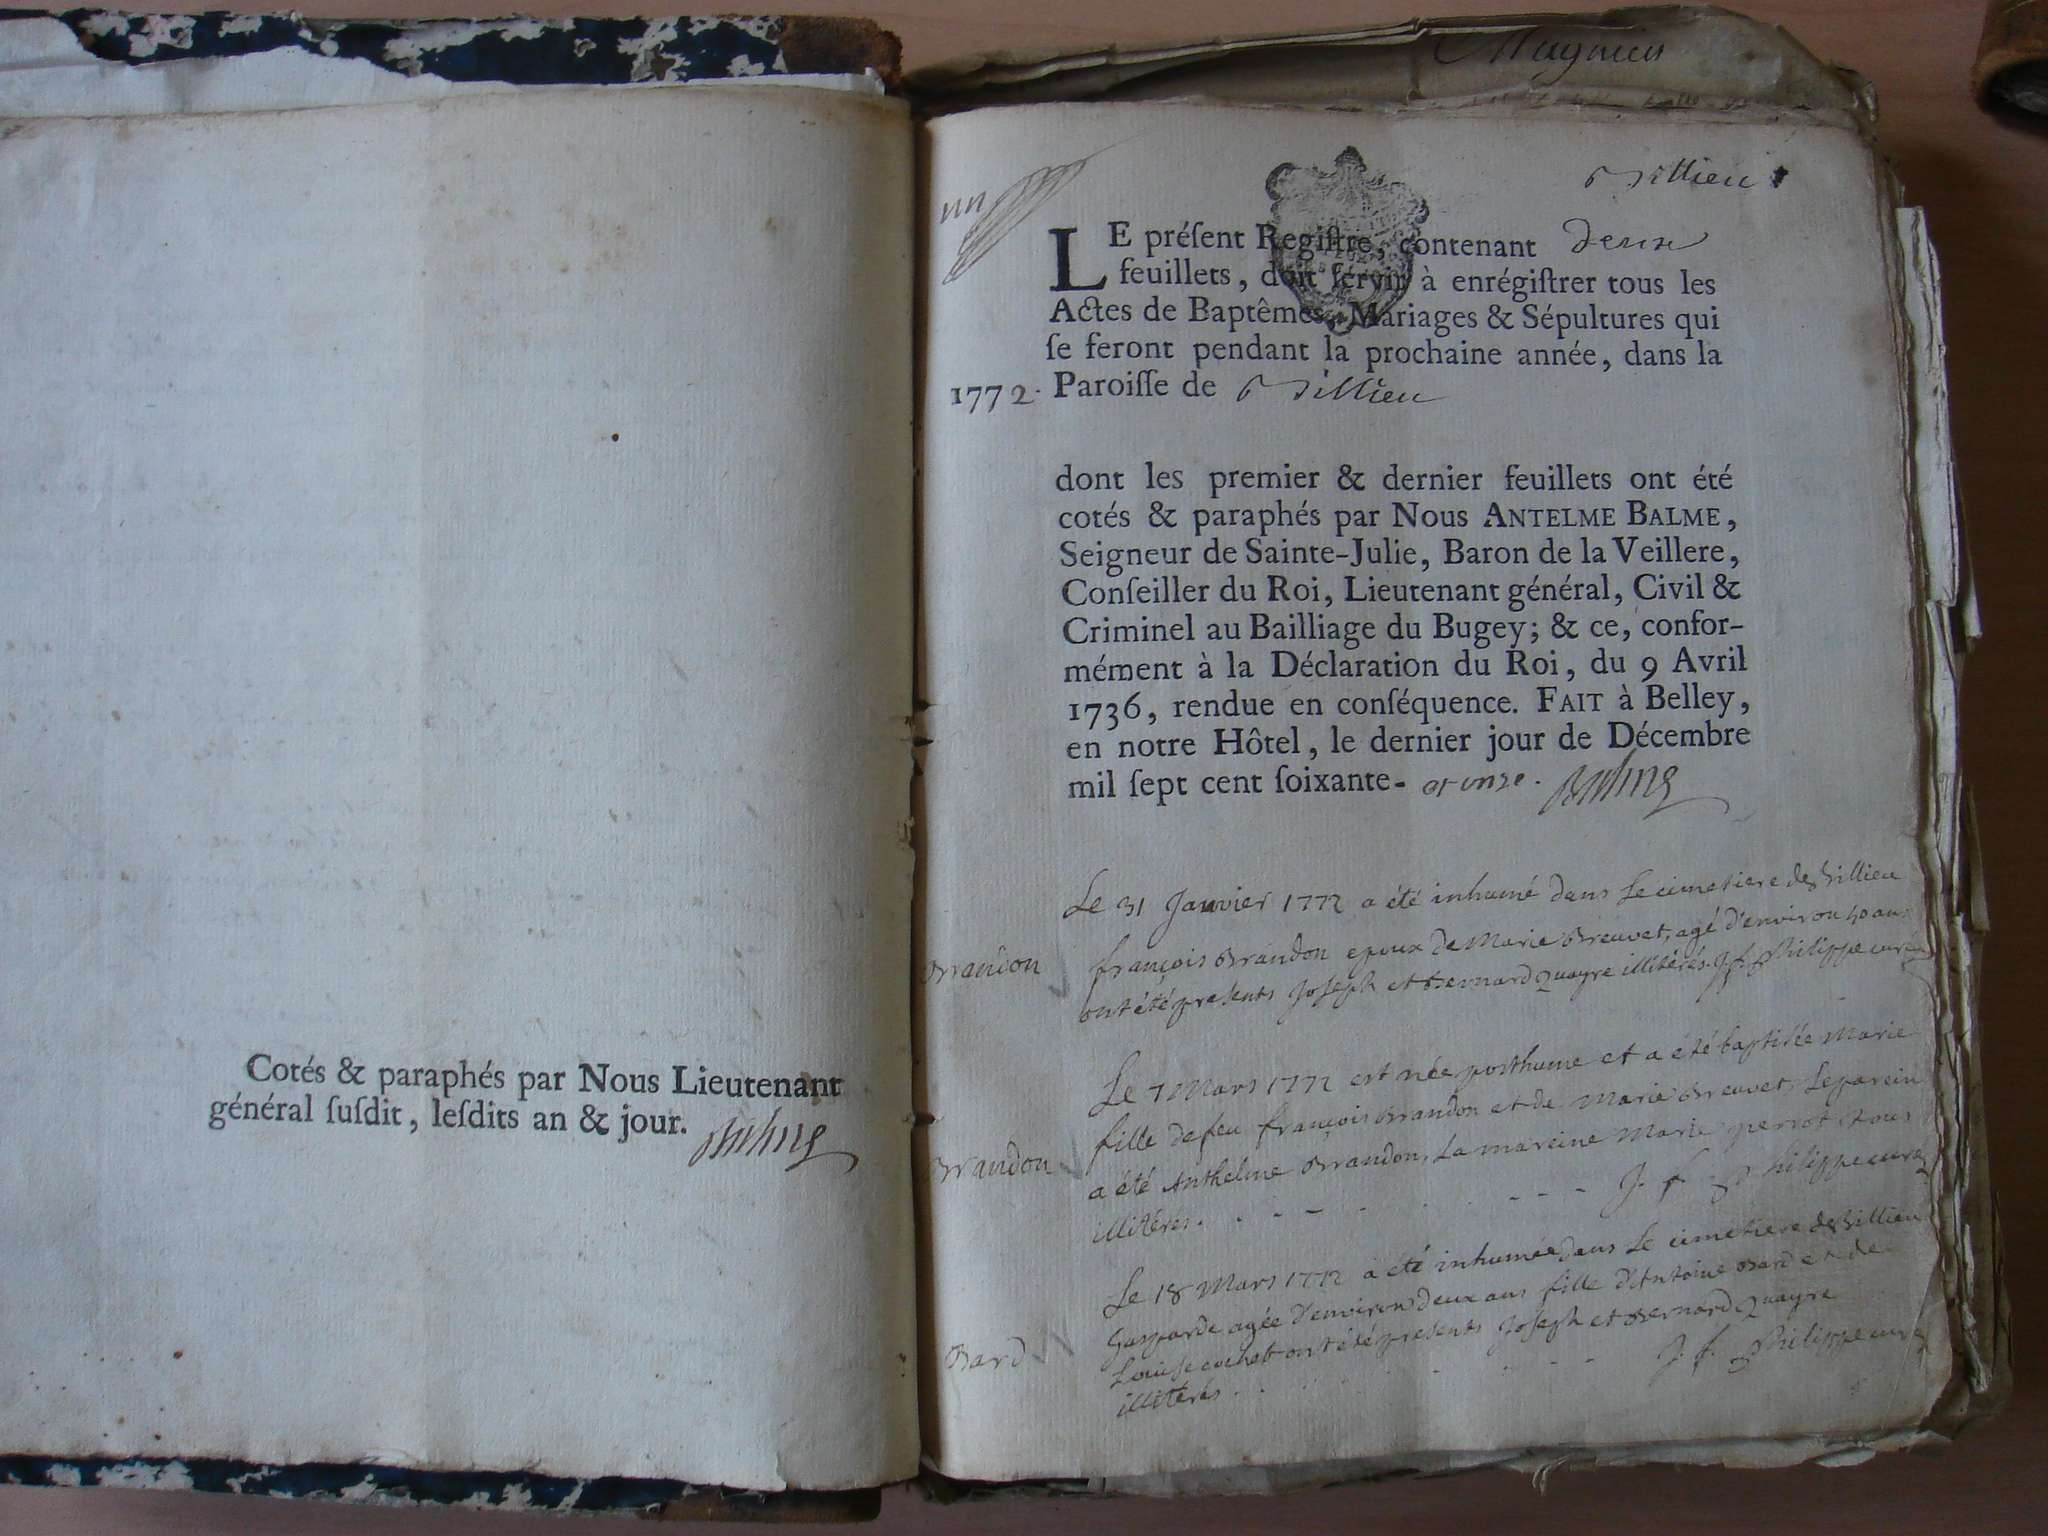 Cotés & paraphés par Nous Lieutenant
général ſuſdit, leſdits an & jour.
Magnieu
un
Billieu
LE préſent Regiſtre, contenant deux
feuillets, doit ſervir à enrégiſtrer tous les
Actes de Baptêmes, Mariages & Sépultures qui
ſe feront pendant la prochaine année, dans la
1772. Paroiſſe de Billieu
dont les premier & dernier feuillets ont été
cotés & paraphés par Nous ANTELME BALME,
Seigneur de Sainte-Julie, Baron de la Veillere,
Conſeiller du Roi, Lieutenant général, Civil &
Criminel au Bailliage du Bugey; & ce, confor-
mément à la Déclaration du Roi, du 9 Avril
1736, rendue en conſéquence. FAIT à Belley,
en notre Hôtel, le dernier jour de Décembre
mil ſept cent ſoixante- et onze.
Le 31 Janvier 1772 a été inhumé dans le cimetiere de Billieu
Brandon françois Brandon epoux de Marie Breuvet, agé d'environ 40 ans
ont été presents Joseph et Bernard Quayre illitérés. J. f. Philippe curé
Le 7 Mars 1772 est née posthume et a été baptisée Marie
fille de feu françois Brandon et de Marie Breuvet, Le parein
Brandon a été Anthelme Brandon, La mareine Marie perrot tous
illitérés. J. f. Philippe curé
Le 18 Mars 1772 a été inhumée dans Le cimetiere de Billieu
Gasparde agée d'environ deux ans fille d'Antoine Bard et de
Bard Louise cochet ont été presents Joseph et Bernard Quayre
illitérés. J. f. Philippe curé